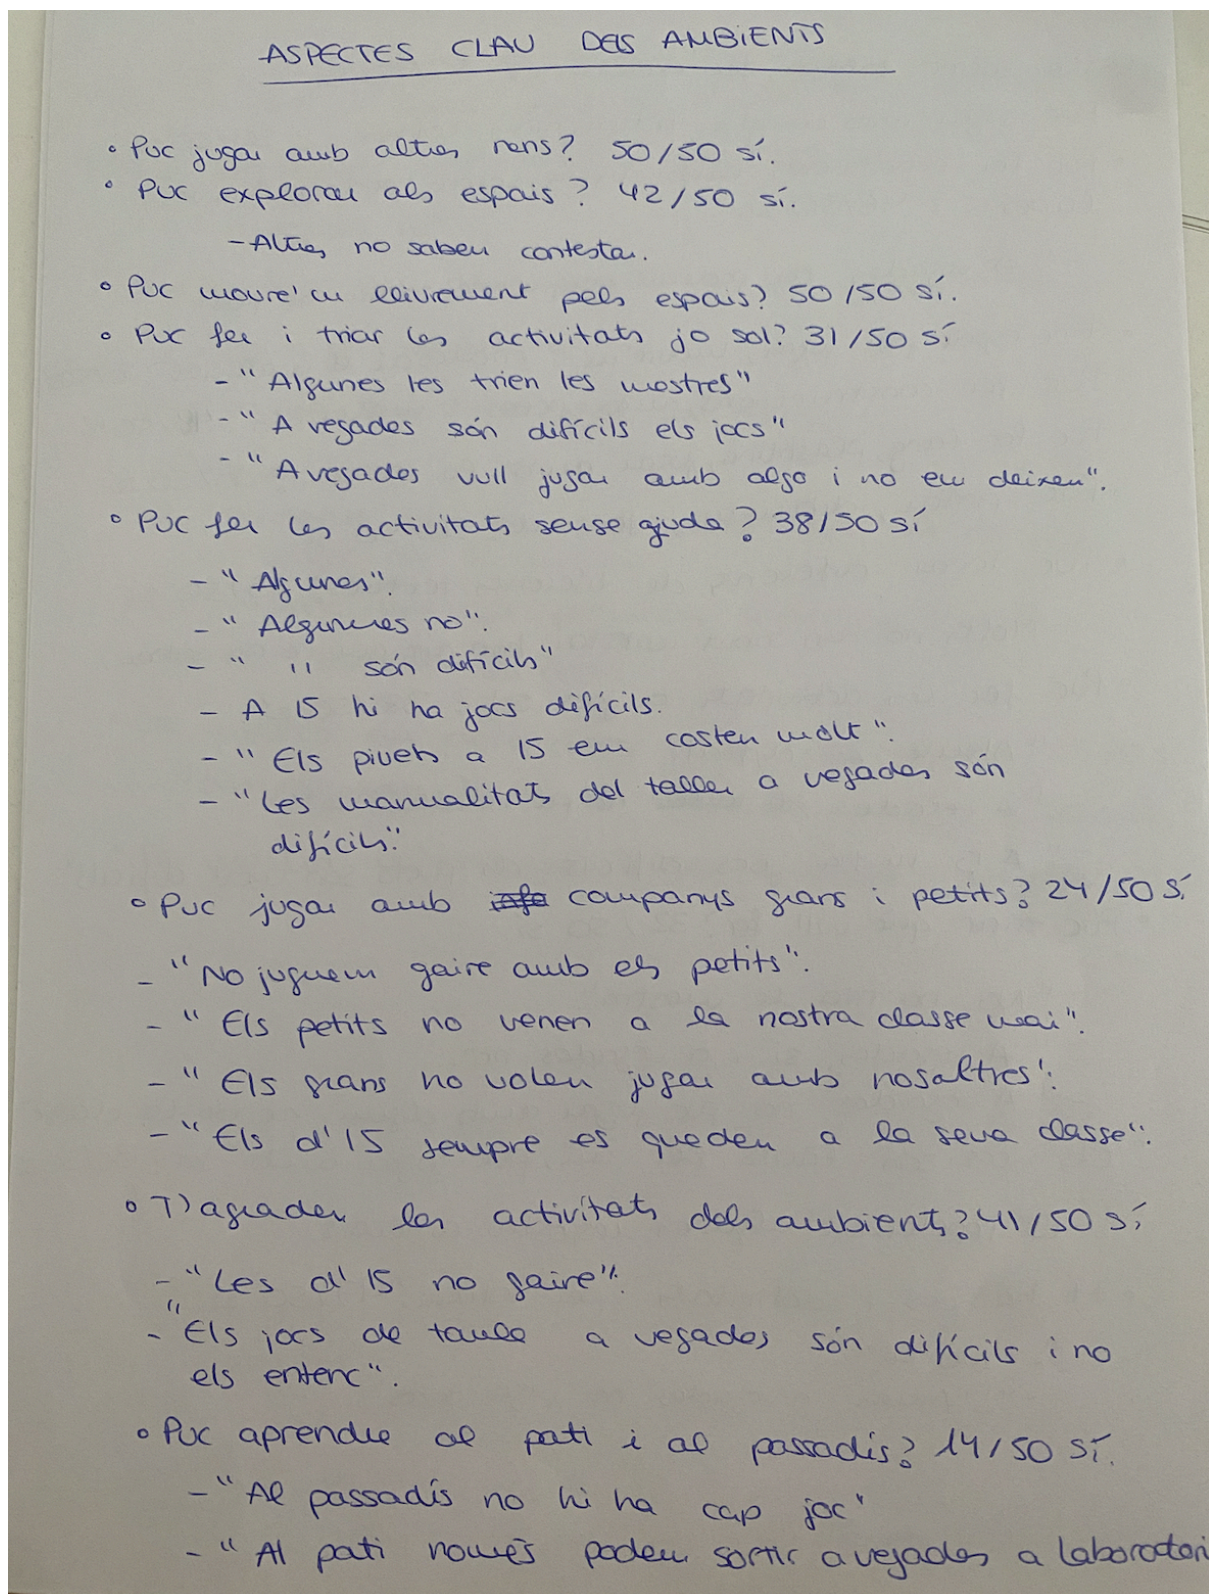 ASPECTES CLAU DELS AMBIENTS
• Puc jugar amb altres nens? 50/50 sí.
• Puc explorar als espais? 42/50 sí.
- Altres no saben contestar.
• Puc moure'm lliurement pels espais? 50/50 sí.
• Puc fer i triar les activitats jo sol? 31/50 sí
- "Algunes les trien les mestres"
- "A vegades són difícils els jocs"
- "A vegades vull jugar amb algo i no em deixen".
• Puc fer les activitats sense ajuda? 38/50 sí
- "Algunes".
- "Algunes no".
- " " són difícils"
- A I5 hi ha jocs difícils.
- "Els pivets a I5 em costen molt".
- "Les manualitats del taller a vegades són
difícils".
• Puc jugar amb companys grans i petits? 24/50 sí
- "No juguem gaire amb els petits".
- "Els petits no venen a la nostra classe mai".
- "Els grans no volen jugar amb nosaltres".
- "Els d'I5 sempre es queden a la seva classe".
• T'agraden les activitats dels ambients? 41/50 sí
- "Les d'I5 no gaire".
- "Els jocs de taula a vegades són difícils i no
els entenc".
• Puc aprendre al pati i al passadís? 14/50 sí.
- "Al passadís no hi ha cap joc"
- "Al pati només podem sortir a vegades a laboratori